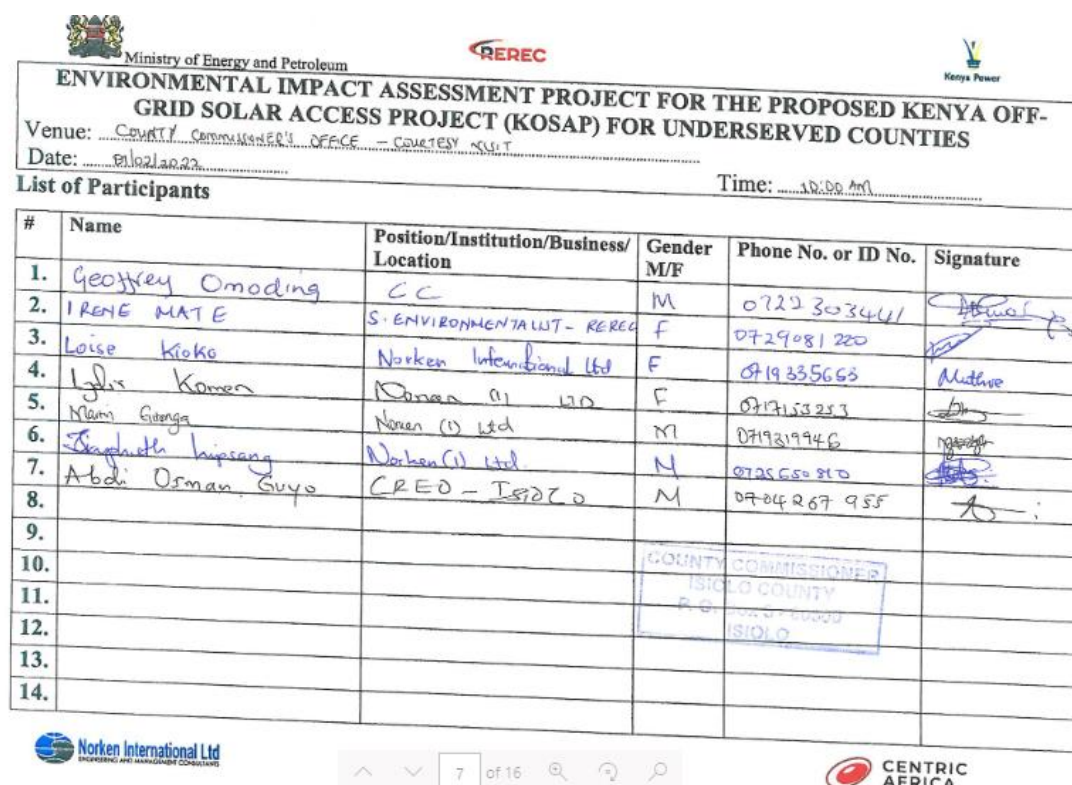 Ministry of Energy and Petroleum
REREC
Kenya Power
ENVIRONMENTAL IMPACT ASSESSMENT PROJECT FOR THE PROPOSED KENYA OFF-
GRID SOLAR ACCESS PROJECT (KOSAP) FOR UNDERSERVED COUNTIES
Venue: COUNTY COMMISSIONER'S OFFICE – COURTESY VISIT
Date: 01/02/2022
Time: 10:00 AM
List of Participants
# Name Position/Institution/Business/ Location Gender M/F Phone No. or ID No. Signature
1. Geoffrey Omoding CC M 0722303441
2. IRENE MATE S. ENVIRONMENTALIST - REREC F 0729081220
3. Loise Kioko Norken International Ltd F 0719335663 Muthve
4. Komen (1) LTD F 0717153253
5. Martin Gitonga Norken (1) Ltd M 0719319946
6. Kipsang Norken (1) Ltd. M
7. Abdi Osman Guyo CREO - ISIOLO M 0704267 955
8.
9.
10.
11.
12.
13.
14.
COUNTY COMMISSIONER
ISIOLO COUNTY
ISIOLO
Norken International Ltd
ENGINEERING AND MANAGEMENT CONSULTANTS
7 of 16
CENTRIC
AFRICA